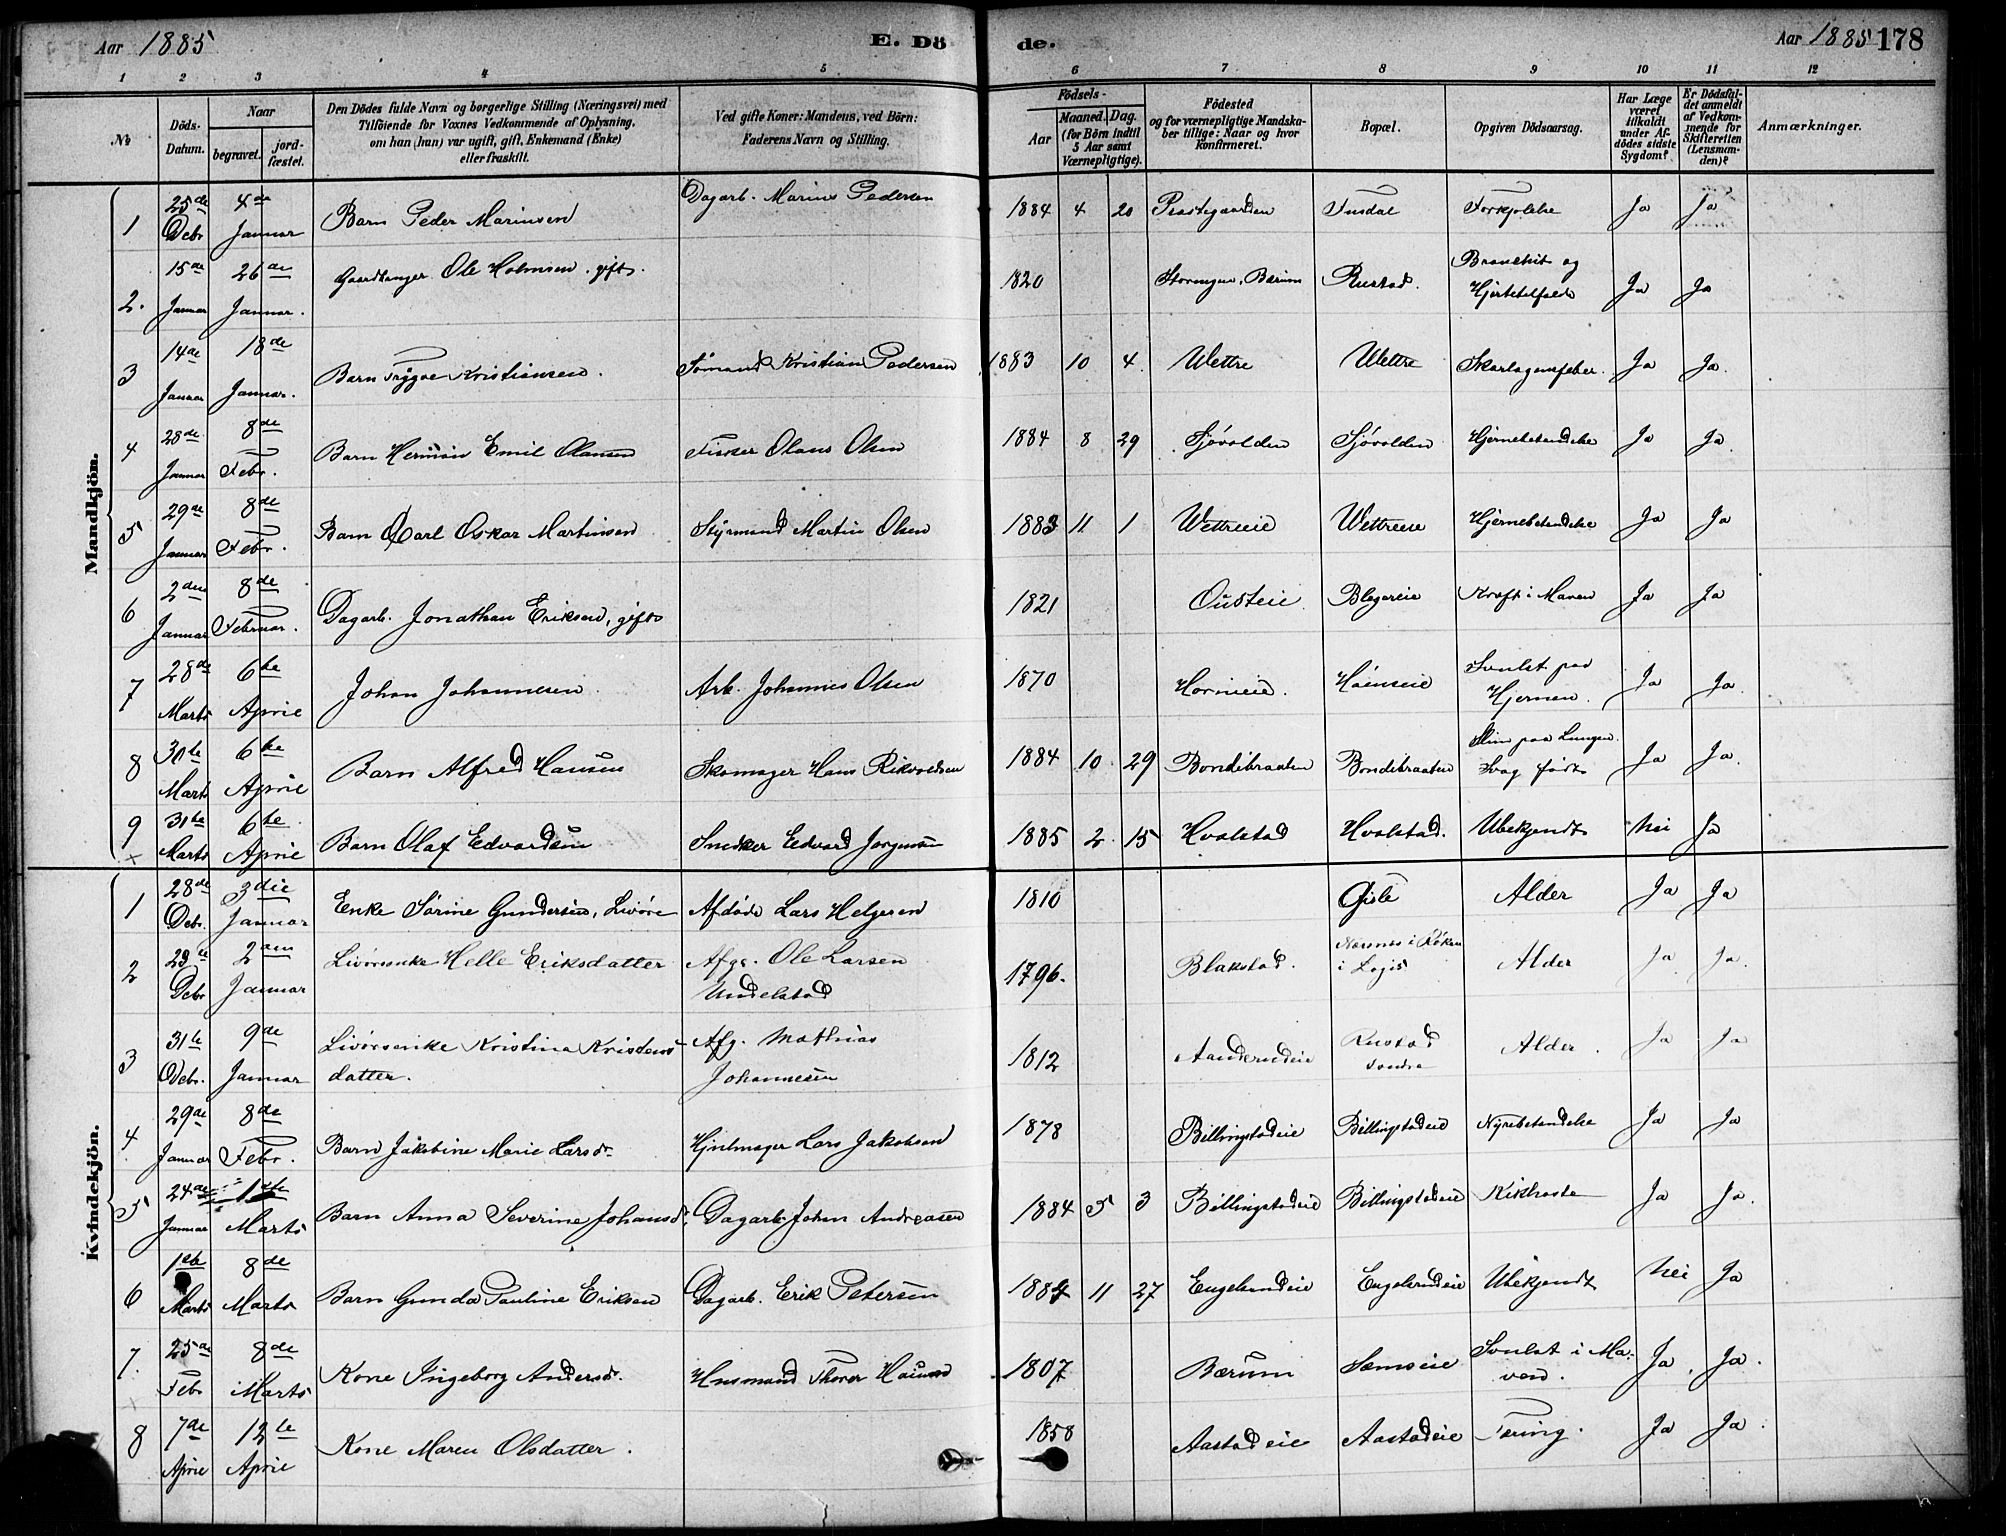 Aar 1885 E. Dö
de. Aar 1885 178
1 2 3 4 5
6 7 8 9 10 11 12
No
Döds-Datum.
Naar
begravet.
jord-fæstet.
Den Dödes fulde Navn og borgerlige Stilling (Næringsvei) med
Tilföiende for Voxnes Vedkommende af Oplysning,
om han (hun) var ugift, gift, Enkemand (Enke)
eller fraskilt.
Ved gifte Koner: Mandens, ved Börn:
Faderens Navn og Stilling.
Födsels-
Aar
Maaned. Dag.
(for Börn indtil
5 Aar samt
Værnepligtige).
Födested
og for værnepligtige Mandska-
ber tillige: Naar og hvor
konfirmeret.
Bopæl.
Opgiven Dödsaarsag.
Har Læge
været
tilkaldt
under Af-
dödes sidste
Sygdom?
Er Dödsfal-
det anmeldt
af Vedkom-
mende for
Skifteretten
(Lensman-
den)?
Anmærkninger.
Mandkjön.
1 25de Debr 4de Januar Barn Peder Marinsen Dagarb. Marius Pedersen 1884 4 20 Præstegaarden Tusdal Ja Ja
2. 15de Januar 26de Januar. Gaardbruger Ole Holmsen. gift. 1820 Bærum Rustad. Bronchit og Hjertetilfælde Ja Ja
3 14de Januar 18de Januar. Barn Trygve Kristiansen. Sömand Kristian Pedersen 1883 10 4. Wettre Wettre Skarlagensfeber. Ja Ja.
4 28de Januar 8de Febr. Barn Herman Emil Olausen Fisker Olaus Olsen 1884 8 29 Sjøvolden Sjøvolden Hjernebetændelse Ja Ja.
5 29de Januar 8de Febr. Barn Carl Oskar Martinsen Styrmand Martin Olsen 1883 11 1 Wettreeie Wettreeie Hjernebetændelse Ja Ja
6 2den Januar 8de Februar. Dagarb. Jonathan Eriksen, gift 1821 Ousteie Kræft i Maven Ja Ja
7 28de Marts 6te April Johan Johannesen Arb. Johannes Olsen 1870 Svulst paa Hjernen. Ja Ja.
8 30te Marts 6te April Barn Alfred Hansen Skomager Hans Rikvoldsen 1884 10. 29 Bondibraaten Bondibraaten Slim paa Lungen. Svag født Ja Ja.
9 31te Marts 6te April Barn Olaf Edvardsen Snedker Edvard Jørgensen 1885 2. 15 Hvalstad Hvalstad. Ubekjendt Nei Ja
Kvindekjön.
1 28de Debr. 3die Januar Enke Sørine Gundersen, Livøre Afdøde Lars Helgesen 1810 Gisle Alder Ja Ja
2 29de Debr 2den Januar Livørsenke Helle Eriksdatter Afg. Ole Larsen Undelstad 1796. Blakstad. Nærsnes i Røken i Logis Alder Ja Ja.
3 31te Debr. 9de Januar Livørsenke Kristina Kristens-datter. Afg. Mathias Johannesen 1812 Aanderudeie Rustad søndre Alder. Ja Ja
4 29de Januar 8de Febr. Barn Jakobine Marie Larsdr. Hjulmager Lars Jakobsen 1878 Billingstadeie Billingstadeie Nyrebetændelse Ja Ja
5 24de Januar 1ste Marts Barn Anna Severine Johansdr. Dagarb. Johan Andreasen 1884 5 3 Billingstadeie Billingstadeie Kikhoste Ja Ja.
6 1ste Marts 8de Marts Barn Gunda Pauline Eriksen Dagarb. Erik Petersen 1884 11 27 Engelsrudeie Engelsrudeie Ubekjendt Nei Ja
7. 25de Febr 8de Marts Kone Ingeborg Andersdr. Husmand Thorer Hansen 1807 Bærum Semseie Svulst i Ma-ven. Ja. Ja.
8 7de April 12te April Kone Maren Olsdatter. 1858 Aastadeie Aastadeie Tæring. Ja Ja.